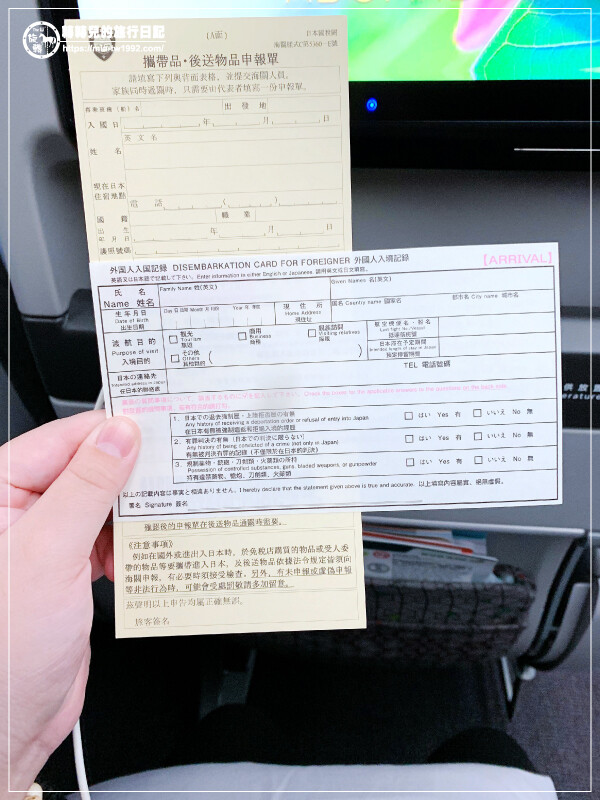 旋轉兒的旅行日記
https://mia-bv1992.com/
(A面)
日本國稅關
海關樣式C第5360-E號
攜帶品・後送物品申報單
請填寫下列與背面表格，並提交海關人員。
家族同時過關時，只需要由代表者填寫一份申報單。
搭乘班機（船）名
出發地
入國日
年
月
日
英文名
姓 名
現在日本
住宿地點
電 話
國 籍
職 業
出 生
年 月 日
年
月
日
護照號碼
外国人入国記録 DISEMBARKATION CARD FOR FOREIGNER 外國人入境記錄
[ARRIVAL]
英語又は日本語で記載して下さい。 Enter information in either English or Japanese. 請用英文或日文填寫。
氏 名
Name 姓名
Family Name 姓(英文)
Given Names 名(英文)
生年月日
Date of Birth
出生日期
Day 日 日期 Month 月 月份 Year 年 年份
現 住 所
Home Address
現住址
国名 Country name 國家名
都市名 City name 城市名
渡航目的
Purpose of visit
入境目的
観光
Tourism
旅遊
商用
Business
商務
親族訪問
Visiting relatives
探親
その他
Others
其他目的
航空機便名・船名
Last flight No./Vessel
抵達航班號
日本滞在予定期間
Intended length of stay in Japan
預定停留期間
日本の連絡先
Intended address in Japan
在日本的聯絡處
TEL 電話號碼
1. 日本での退去強制歴・上陸拒否歴の有無
Any history of receiving a deportation order or refusal of entry into Japan
在日本有無被強制遣返和拒絕入境的經歷
はい Yes 有
いいえ No 無
2. 有罪判決の有無（日本での判決に限らない）
Any history of being convicted of a crime (not only in Japan)
有無被判決有罪的記錄（不僅限於在日本的判決）
はい Yes 有
いいえ No 無
3. 規制薬物・銃砲・刀剣類・火薬類の所持
Possession of controlled substances, guns, bladed weapons, or gunpowder
持有違禁藥物、槍炮、刀劍類、火藥類
はい Yes 有
いいえ No 無
以上の記載内容は事実と相違ありません。I hereby declare that the statement given above is true and accurate. 以上填寫內容屬實，絕無虛假。
署名 Signature 簽名
確認後的申報單在後送物品通關時需要。
《注意事項》
例如在國外或進出入日本時，於免稅店購買的物品或受人委
帶的物品等要攜帶進入日本，及後送物品依據法令規定皆須向
海關申報，有必要時須接受檢查。另外，有未申報或虛偽申報
等非法行為時，可能會受處罰敬請多加留意。
茲聲明以上申告均屬正確無誤。
旅客簽名